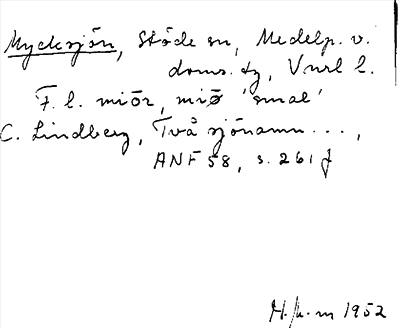 Mycksjön, Stöde sn, Medelp. v.
doms. dg, Vnrl l.
F. l. miōr, miø 'smal'
C. Lindberg, Två sjönamn ...,
ANF 58, s. 261 f
1952